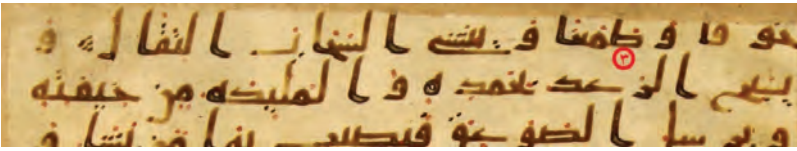 خوفا و طمعا و ينشى السحاب الثقال و
٣
يسبح الرعد بحمده و المليكه من خيفته
و يرسل الصوعق فيصيب بها من يشا و